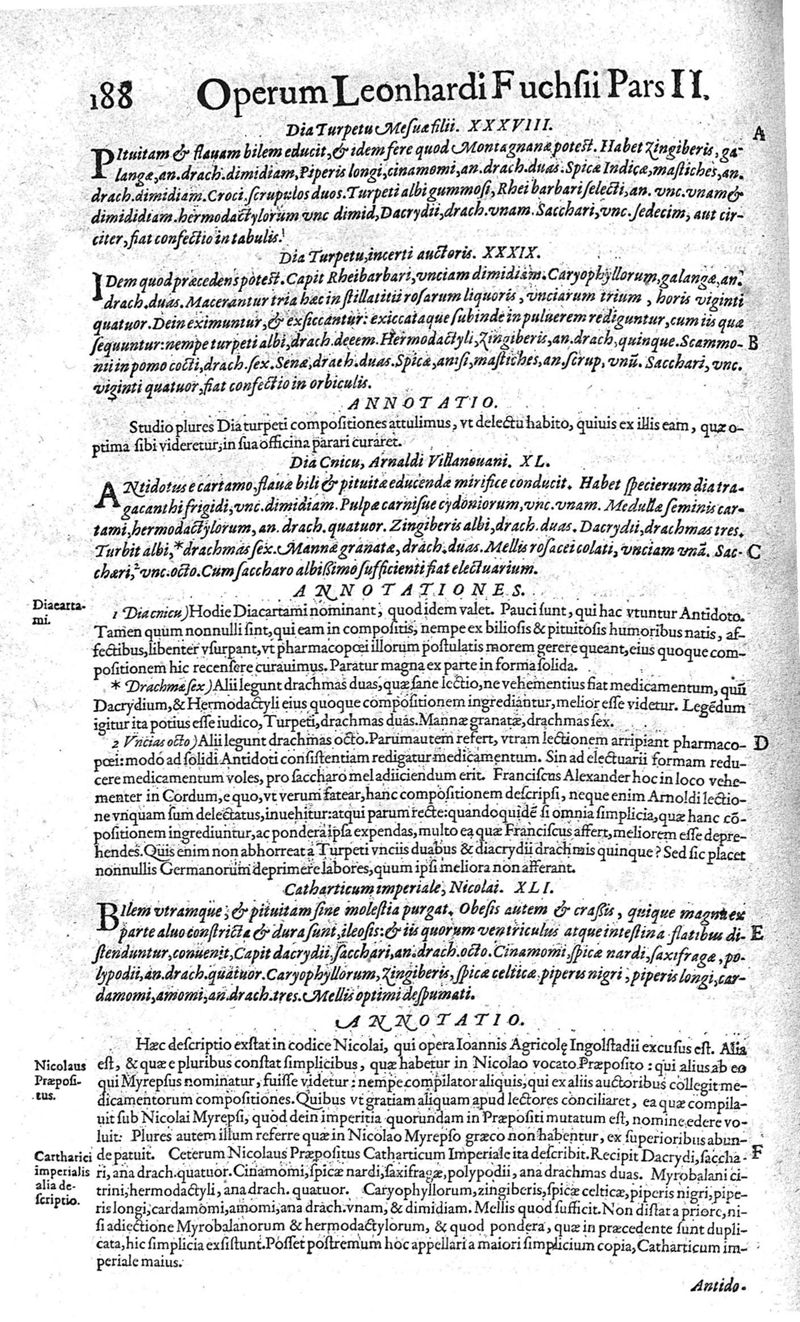 188 Operum Leonhardi Fuchsii Pars II.
Dia Turpetu Mesuæ filii. XXXVIII.
A
PItuitam & flauam bilem educit, & idem fere quod Montagnanæ potest. Habet Zingiberis, ga-
langæ, an. drach. dimidiam, Piperis longi, cinamomi, an. drach. duas. Spicæ Indicæ, mastiches, an.
drach. dimidiam. Croci, scrupulos duos. Turpeti albi gummosi, Rhei barbari selecti, an. vnc. vnam &
dimididiam. hermodactylorum vnc dimid, Dacrydii, drach. vnam. Sacchari, vnc. sedecim, aut cir-
citer, fiat confectio in tabulis.
Dia Turpetu, incerti auctoris. XXXIX.
IDem quod præcedens potest. Capit Rheibarbari, vnciam dimidiam. Caryophyllorum, galangæ, an.
drach. duas. Macerantur tria hæc in stillatitii rosarum liquoris, vnciarum trium, horis viginti
quatuor. Dein eximuntur, & exsiccantur: exiccataque subinde in puluerem rediguntur, cum iis quæ
sequuntur: nempe turpeti albi, drach. decem. Hermodactyli, Zingiberis, an. drach. quinque. Scammo-
B
nii in pomo cocti, drach. sex. Senæ, drach. duas. Spicæ, anisi, mastiches, an scrup, vnũ. Sacchari, vnc.
viginti quatuor, fiat confectio in orbiculis.
ANNOTATIO.
Studio plures Dia turpeti compositiones attulimus, vt delectu habito, quiuis ex illis eam, quæ o-
ptima sibi videretur, in sua officina parari curaret.
Dia Cnicu, Arnaldi Villanouani. XL.
ANtidotus e cartamo, flauæ bili & pituitæ educendæ mirifice conducit. Habet specierum diatra-
gacanthi frigidi, vnc. dimidiam. Pulpæ carnisue cydoniorum, vnc. vnam. Medullæ seminis car-
tami, hermodactylorum, an. drach. quatuor. Zingiberis albi, drach. duas. Dacrydii, drachmas tres.
Turbit albi, * drachmas sex. Mannæ granatæ, drach. duas. Mellis rosacei colati, vnciam vnã. Sac-
C
chari, ² vnc. octo. Cum saccharo albissimo sufficienti fiat electuarium.
ANNOTATIONES.
Diacarta-
mi.
1 Diacnicu) Hodie Diacartami nominant, quod idem valet. Pauci sunt, qui hac vtuntur Antidoto.
Tamen quum nonnulli sint, qui eam in compositis, nempe ex biliosis & pituitosis humoribus natis, af-
fectibus, libenter vsurpant, vt pharmacopœi illorum postulatis morem gerere queant, eius quoque com-
positionem hic recensere curauimus. Paratur magna ex parte in forma solida.
* Drachmas sex) Alii legunt drachmas duas, quæ sane lectio, ne vehementius fiat medicamentum, quũ
Dacrydium, & Hermodactyli eius quoque compositionem ingrediantur, melior esse videtur. Legẽdum
igitur ita potius esse iudico, Turpeti, drachmas duas. Mannæ granatæ, drachmas sex.
2 Vncias octo) Alii legunt drachmas octo. Parum autem refert, vtram lectionem arripiant pharmaco-
D
pœi: modo ad solidi Antidoti consistentiam redigatur medicamentum. Sin ad electuarii formam redu-
cere medicamentum voles, pro saccharo mel adiiciendum erit. Franciscus Alexander hoc in loco vehe-
menter in Cordum, e quo, vt verum fatear, hanc compositionem descripsi, neque enim Arnoldi lectio-
ne vnquam sum delectatus, inuehitur: atqui parum recte: quandoquidẽ si omnia simplicia, quæ hanc cõ-
positionem ingrediuntur, ac pondera ipsa expendas, multo ea quæ Franciscus affert, meliorem esse depre-
hendes. Quis enim non abhorreat a Turpeti vnciis duabus & diacrydii drachmis quinque? Sed sic placet
nonnullis Germanorum deprimere labores, quum ipsi meliora non afferant.
Catharticum imperiale, Nicolai. XLI.
BIlem vtramque, & pituitam sine molestia purgat. Obesis autem & crassis, quique magna ex
parte aluo constricta & dura sunt, ileosis: & iis quorum ventriculus atque intestina flatibus di-
E
stenduntur, conuenit, Capit dacrydii, sacchari, an. drach. octo. Cinamomi, spicæ nardi, saxifragæ, po-
lypodii, an. drach. quatuor. Caryophyllorum, Zingiberis, spicæ celticæ, piperis nigri, piperis longi, car-
damomi, amomi, an. drach. tres. Mellis optimi despumati.
ANNOTATIO.
Hæc descriptio exstat in codice Nicolai, qui opera Ioannis Agricolę Ingolstadii excusus est. Alia
Nicolaus
Præposi-
tus.
est, & quæ e pluribus constat simplicibus, quæ habetur in Nicolao vocato Præposito: qui alius ab eo
qui Myrepsus nominatur, fuisse videtur: nempe compilator aliquis, qui ex aliis auctoribus collegit me-
dicamentorum compositiones. Quibus vt gratiam aliquam apud lectores conciliaret, ea quæ compila-
uit sub Nicolai Myrepsi, quod dein imperitia quorundam in Præpositi mutatum est, nomine edere vo-
luit: Plures autem illum referre quæ in Nicolao Myrepso græco non habentur, ex superioribus abun-
Cathartici
imperialis
alia de-
scriptio.
de patuit. Ceterum Nicolaus Præpositus Catharticum Imperiale ita describit. Recipit Dacrydi, saccha-
F
ri, ana drach. quatuor. Cinamomi, spicæ nardi, saxifragæ, polypodii, ana drachmas duas. Myrobalani ci-
trini, hermodactyli, ana drach. quatuor. Caryophyllorum, zingiberis, spicæ celticæ, piperis nigri, pipe-
ris longi, cardamomi, amomi, ana drach. vnam, & dimidiam. Mellis quod sufficit. Non distat a priore, ni-
si adiectione Myrobalanorum & hermodactylorum, & quod pondera, quæ in præcedente sunt dupli-
cata, hic simplicia exsistunt. Posset postremum hoc appellari a maiori simplicium copia, Catharticum im-
periale maius.
Antido-